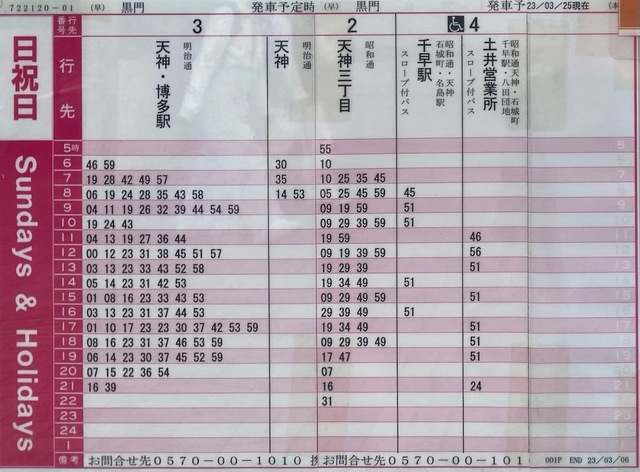 722120-01 (早) 黒門 発車予定時 (早) 黒門 発車予 23/03/25現在 (本
日祝日
Sundays & Holidays
行先番号 行先 3 2 4
行先
天神・博多駅 明治通
天神 明治通
天神三丁目 昭和通
千早駅 昭和通・天神 石城町・名島駅 スロープ付バス
土井営業所 昭和通天神・石城町 千早駅・八田団地 スロープ付バス
5時 55 5
6 46 59 30 10 6
7 19 28 42 49 57 35 10 25 35 45 7
8 06 19 24 28 35 43 58 14 53 05 25 45 59 45 8
9 04 11 19 26 32 39 44 54 59 09 19 59 51 9
10 19 24 43 09 29 39 59 51 10
11 04 13 19 27 36 44 19 59 46 11
12 00 12 23 31 38 45 51 57 09 19 39 59 56 12
13 03 13 23 33 43 52 58 19 29 39 51 13
14 05 14 23 31 42 53 19 34 49 51 14
15 01 08 16 23 33 43 53 09 29 49 59 51 15
16 03 13 23 31 37 44 53 29 39 49 51 16
17 01 10 17 23 23 30 37 42 53 59 19 34 49 51 17
18 08 16 23 31 37 46 53 59 09 29 39 49 51 18
19 06 14 23 30 37 45 52 59 17 47 51 19
20 07 15 22 36 54 07 20
21 16 39 16 24 21
22 31 22
23 23
1 1
備考 お問合せ先0570-00-1010 お問合せ先0570-00-101 001P END 23/03/06